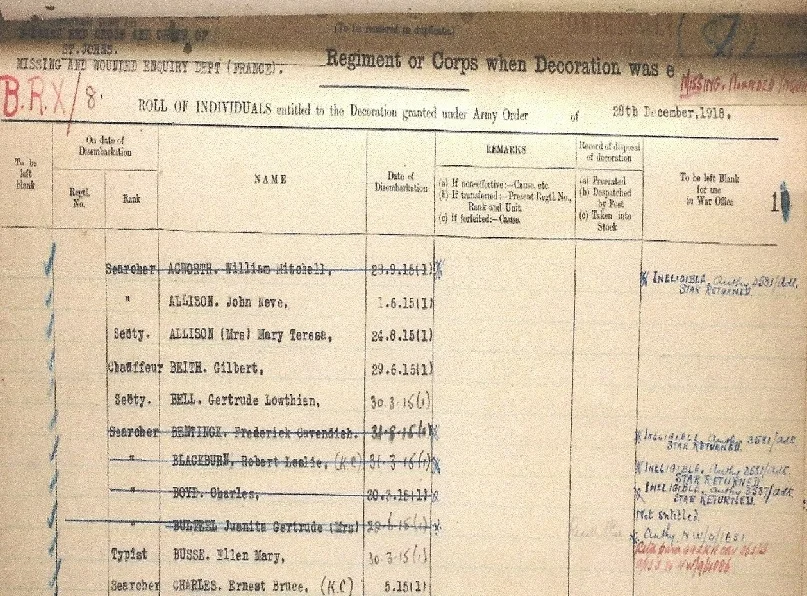 (To be rendered in duplicate)
ST. JOHNS.
MISSING AND WOUNDED ENQUIRY DEPT (FRANCE).
Regiment or Corps when Decoration was e
MISSING. WOUNDED
B.R.X/8.
ROLL OF INDIVIDUALS entitled to the Decoration granted under Army Order of 28th December, 1918.
To be left blank
On date of Disembarkation
Regtl. No.
Rank
NAME
Date of Disembarkation
REMARKS
(a) If non-effective:—Cause, etc.
(b) If transferred:—Present Regtl. No., Rank and Unit.
(c) If forfeited:—Cause.
Record of disposal of decoration
(a) Presented
(b) Despatched by Post
(c) Taken into Stock
To be left Blank for use in War Office
1
Searcher ACWORTH. William Mitchell, 29.9.15(1) X INELIGIBLE. Authy
STAR RETURNED.
" ALLISON. John Neve, 1.6.15(1)
Secty. ALLISON (Mrs) Mary Teresa, 24.8.15(1)
Chauffeur BEITH. Gilbert, 29.6.15(1)
Secty. BELL. Gertrude Lowthian, 30.3.15(1)
Searcher BENTINCK. Frederick Cavendish. X INELIGIBLE. Authy
STAR RETURNED.
" BLACKBURN. Robert Leslie, (K.C) 31.3.15(1) X INELIGIBLE. Authy
STAR RETURNED
" BOYD. Charles, 20.3.15(1) X INELIGIBLE. Authy
STAR RETURNED.
" BULTEEL Juanita Gertrude (Mrs) Not entitled
X Authy NW/9/
Typist BUSSE. Ellen Mary, 30.3.15(1)
Searcher CHARLES. Ernest Bruce, (K.C) 5.15(1)